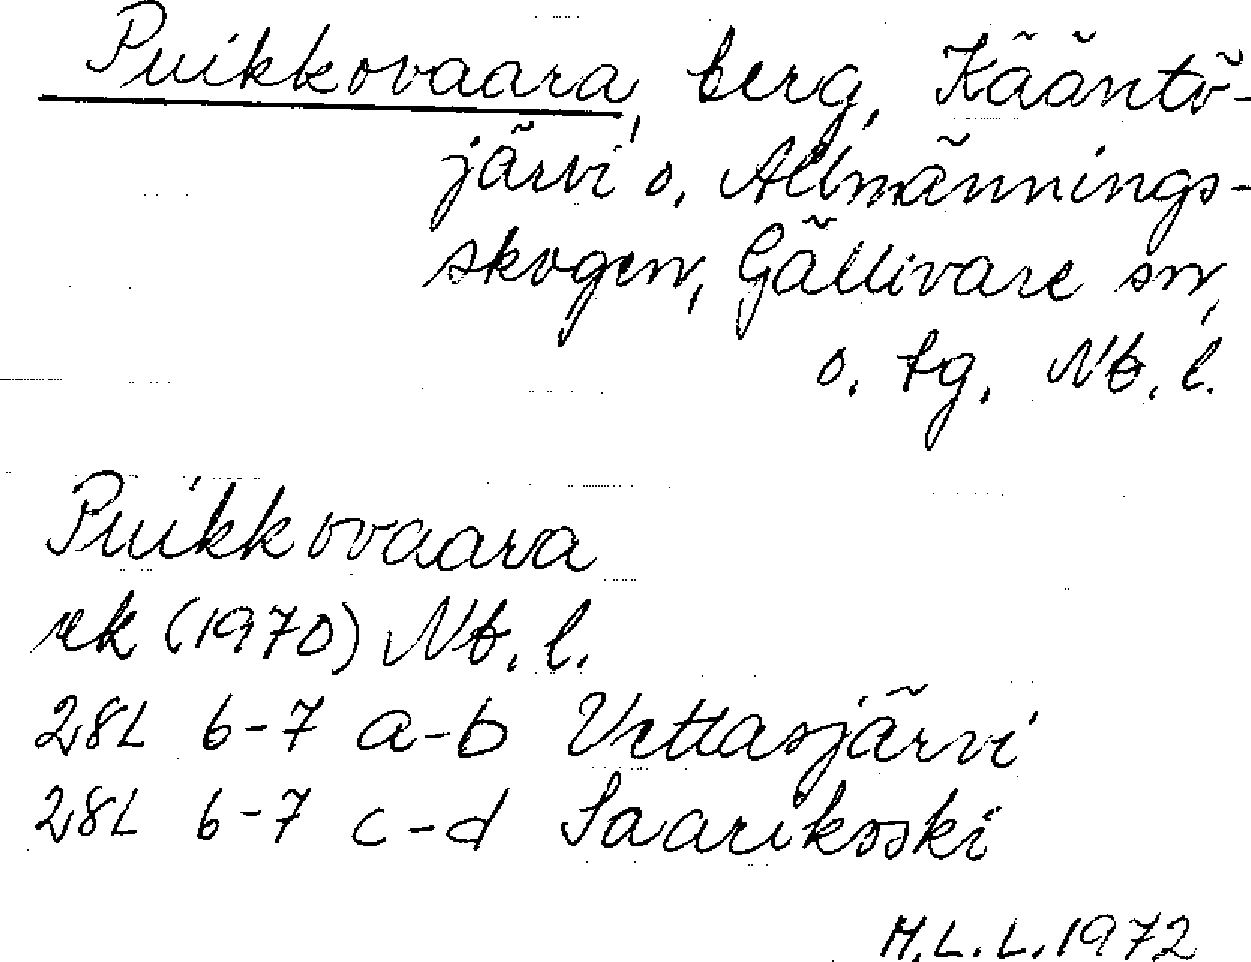 Puikkovaara, berg, Kääntö-
järvi o. Allmännings-
skogen, Gällivare sn,
o. tg. Nb. l.
Puikkovaara
rk (1970) Nb. l.
28L 6-7 a-b Vettasjärvi
28L 6-7 c-d Saarikoski
M.L.L. 1972